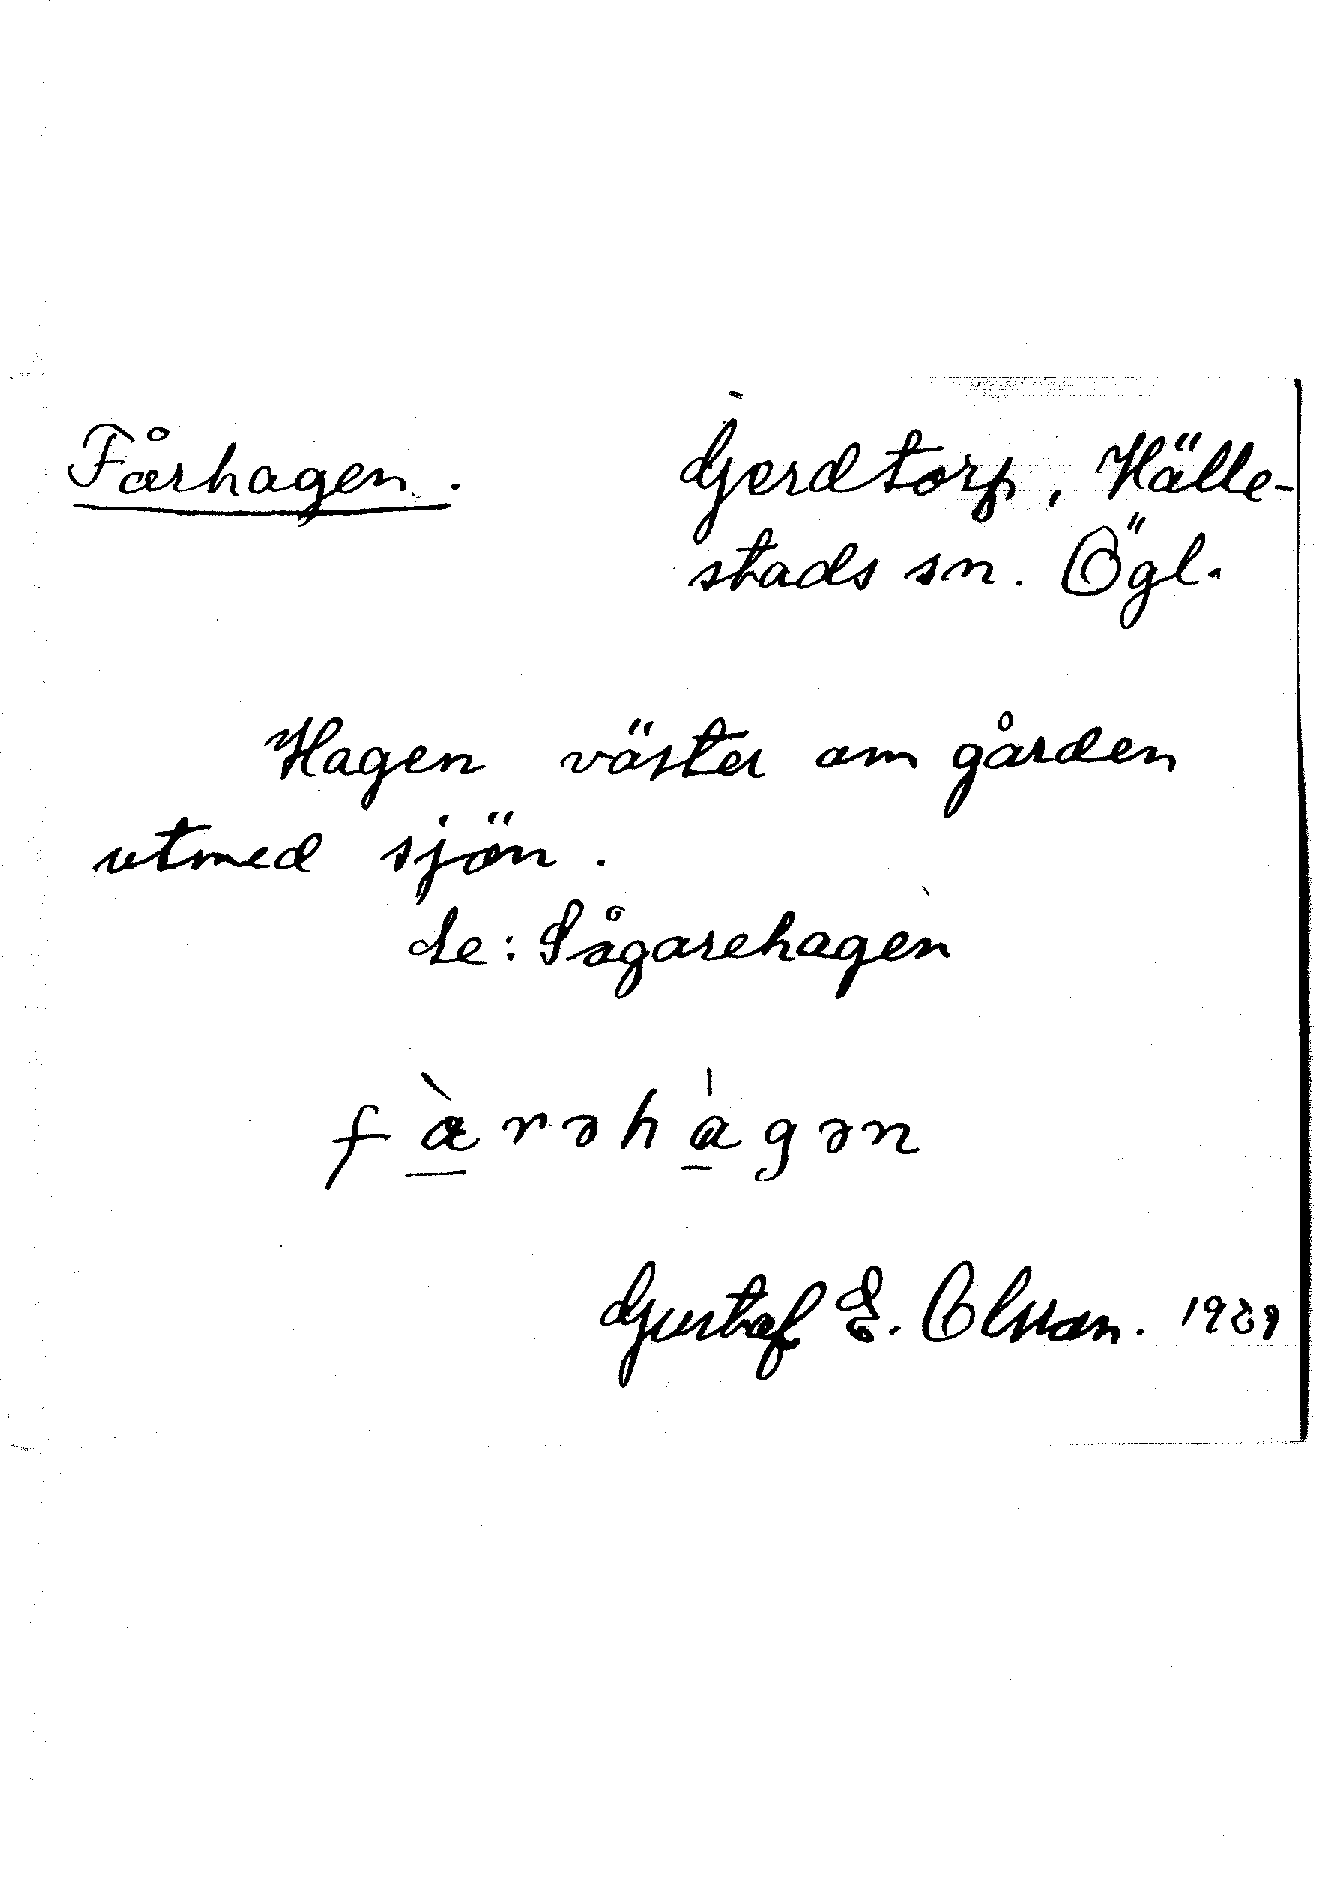 Fårhagen. Gjerdtorp, Hälle-
stads sn. Ögl.
Hagen väster om gården
utmed sjön.
Se: Sågarehagen
fæ̀rəhágən
Gustaf E. Olsson. 1929